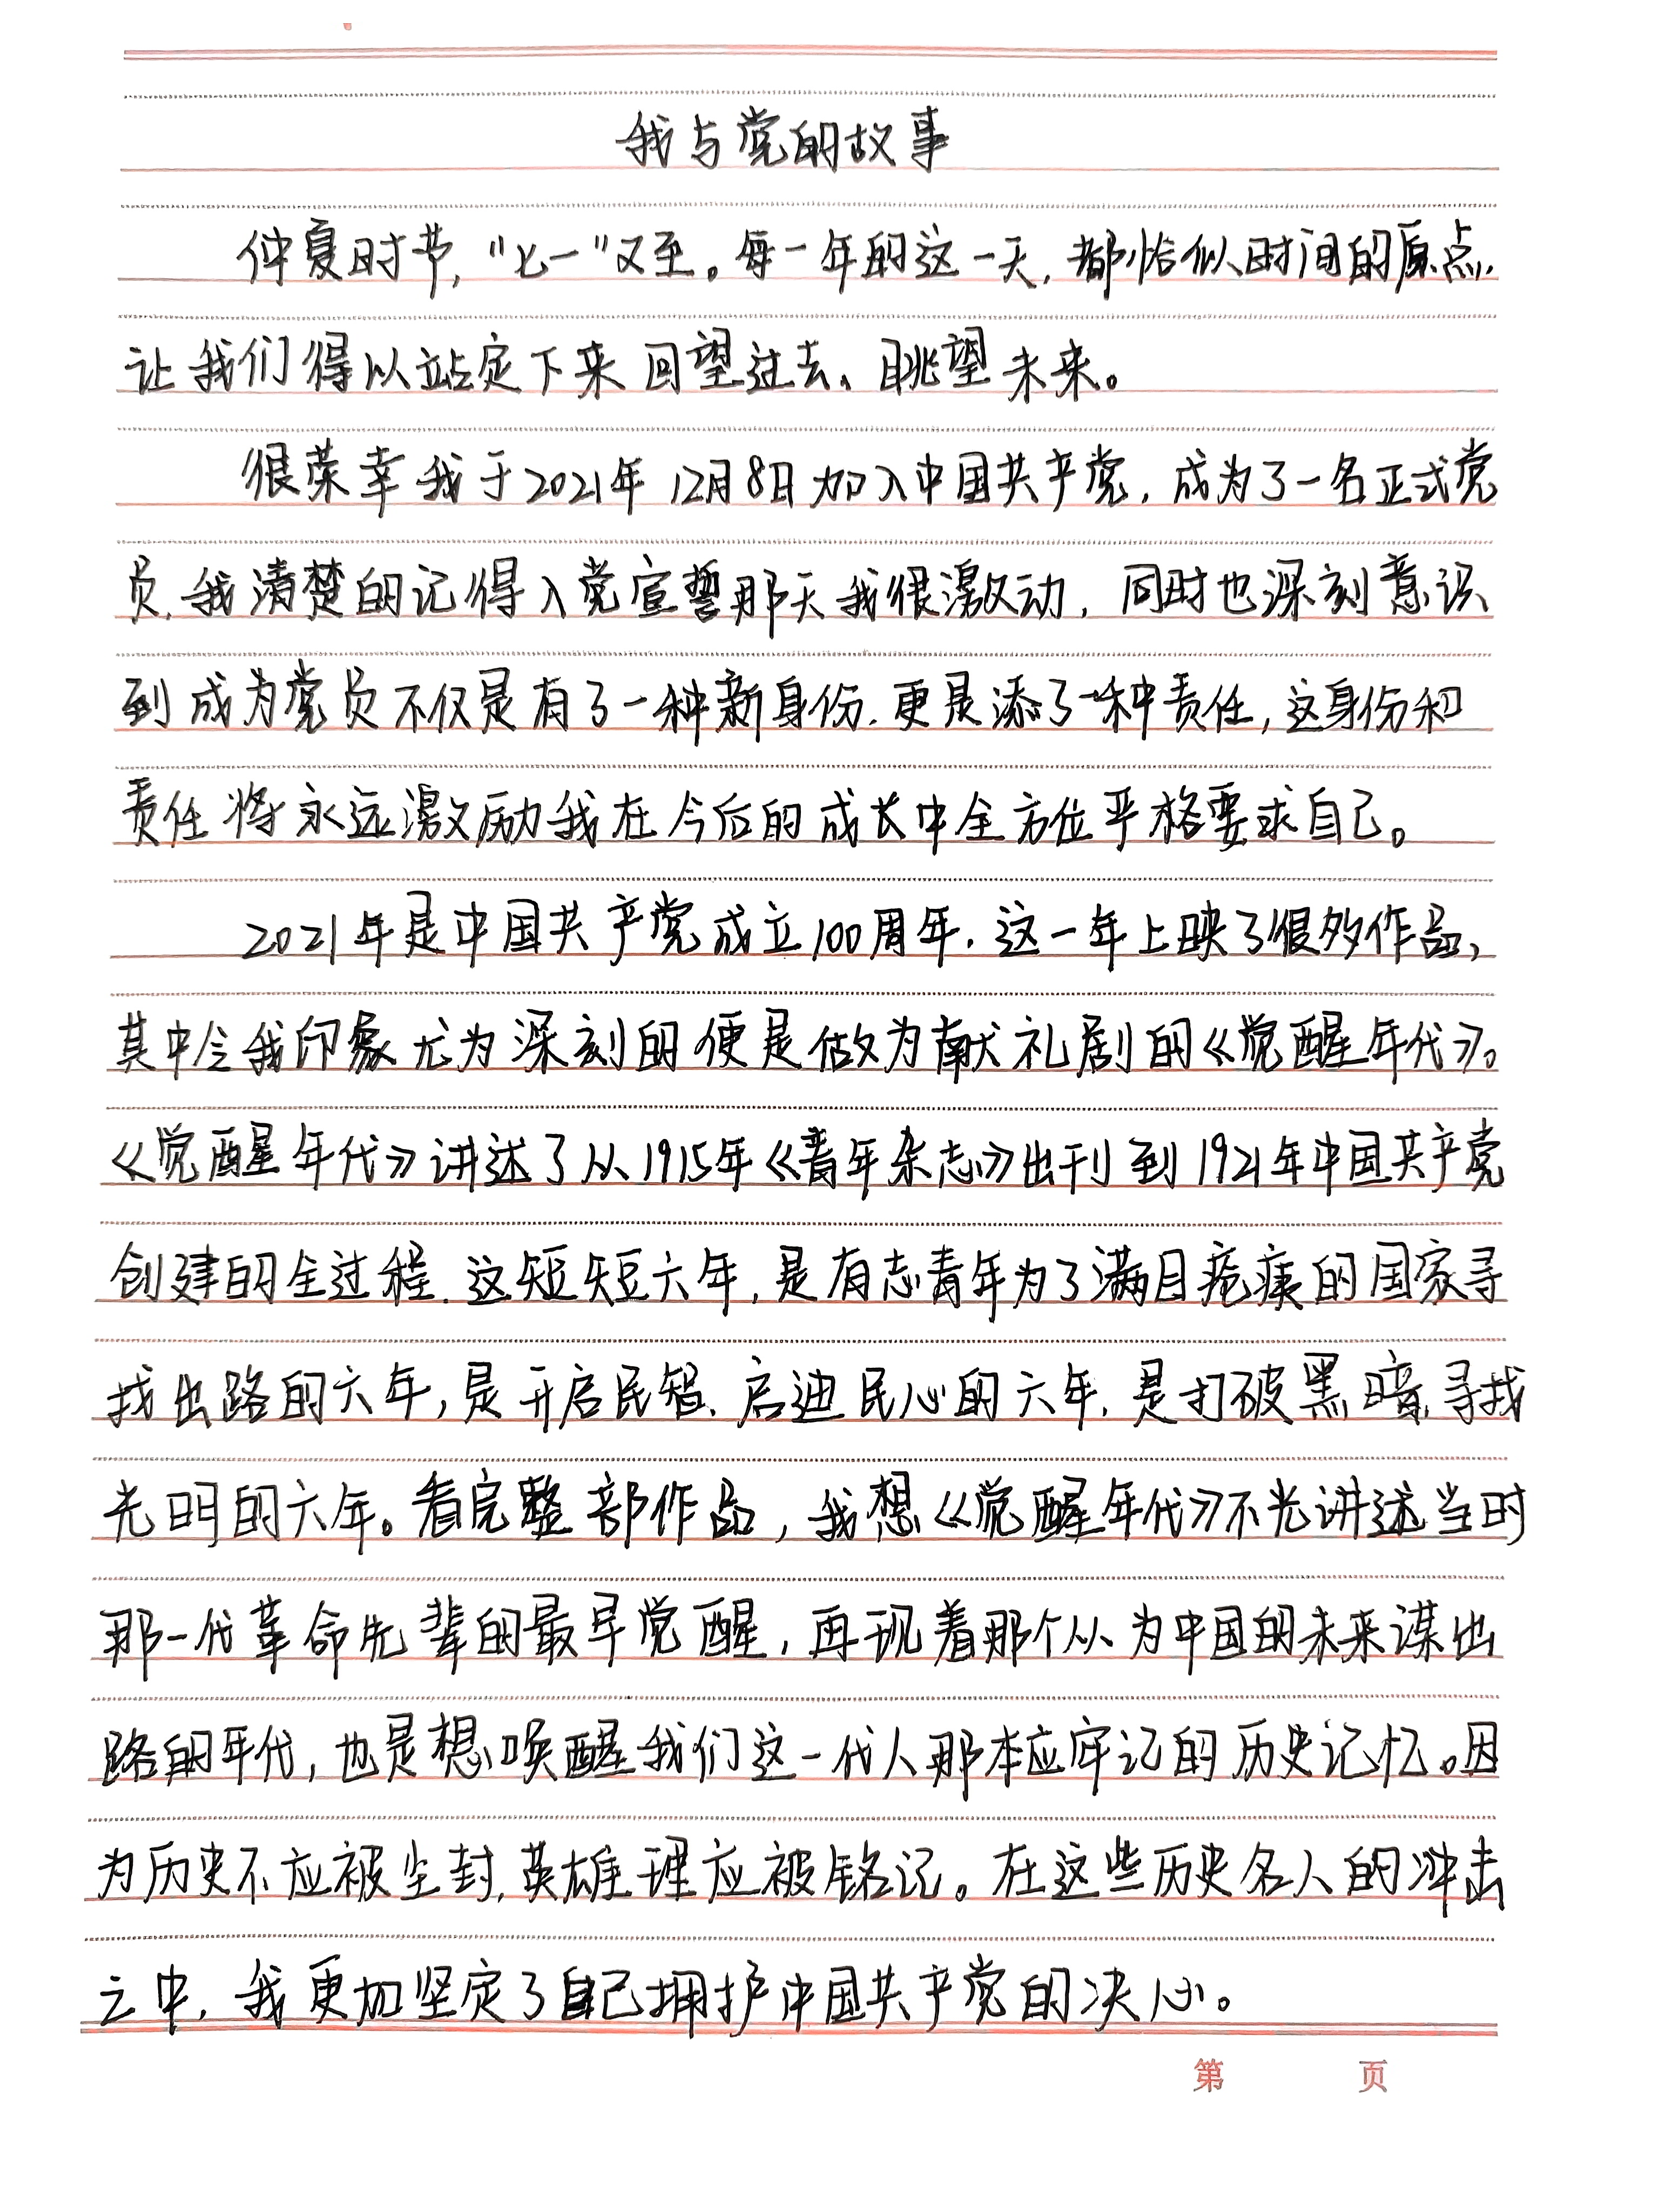 我与党的故事
仲夏时节，“七一”又至。每一年的这一天，都恰似时间的原点，
让我们得以站定下来回望过去、眺望未来。
很荣幸我于2021年12月8日加入中国共产党，成为了一名正式党
员，我清楚的记得入党宣誓那天我很激动，同时也深刻意识
到成为党员不仅是有了一种新身份，更是添了一种责任，这身份和
责任将永远激励我在今后的成长中全方位严格要求自己。
2021年是中国共产党成立100周年，这一年上映了很多作品，
其中令我印象尤为深刻的便是做为献礼剧的《觉醒年代》。
《觉醒年代》讲述了从1915年《青年杂志》出刊到1921年中国共产党
创建的全过程。这短短六年，是有志青年为了满目疮痍的国家寻
找出路的六年，是开启民智、启迪民心的六年，是打破黑暗、寻找
光明的六年。看完整部作品，我想《觉醒年代》不光讲述当时
那一代革命先辈的最早觉醒，再现着那个从为中国的未来谋出
路的年代，也是想唤醒我们这一代人那本应牢记的历史记忆。因
为历史不应被尘封，英雄理应被铭记。在这些历史名人的冲击
之中，我更加坚定了自己拥护中国共产党的决心。
第 页